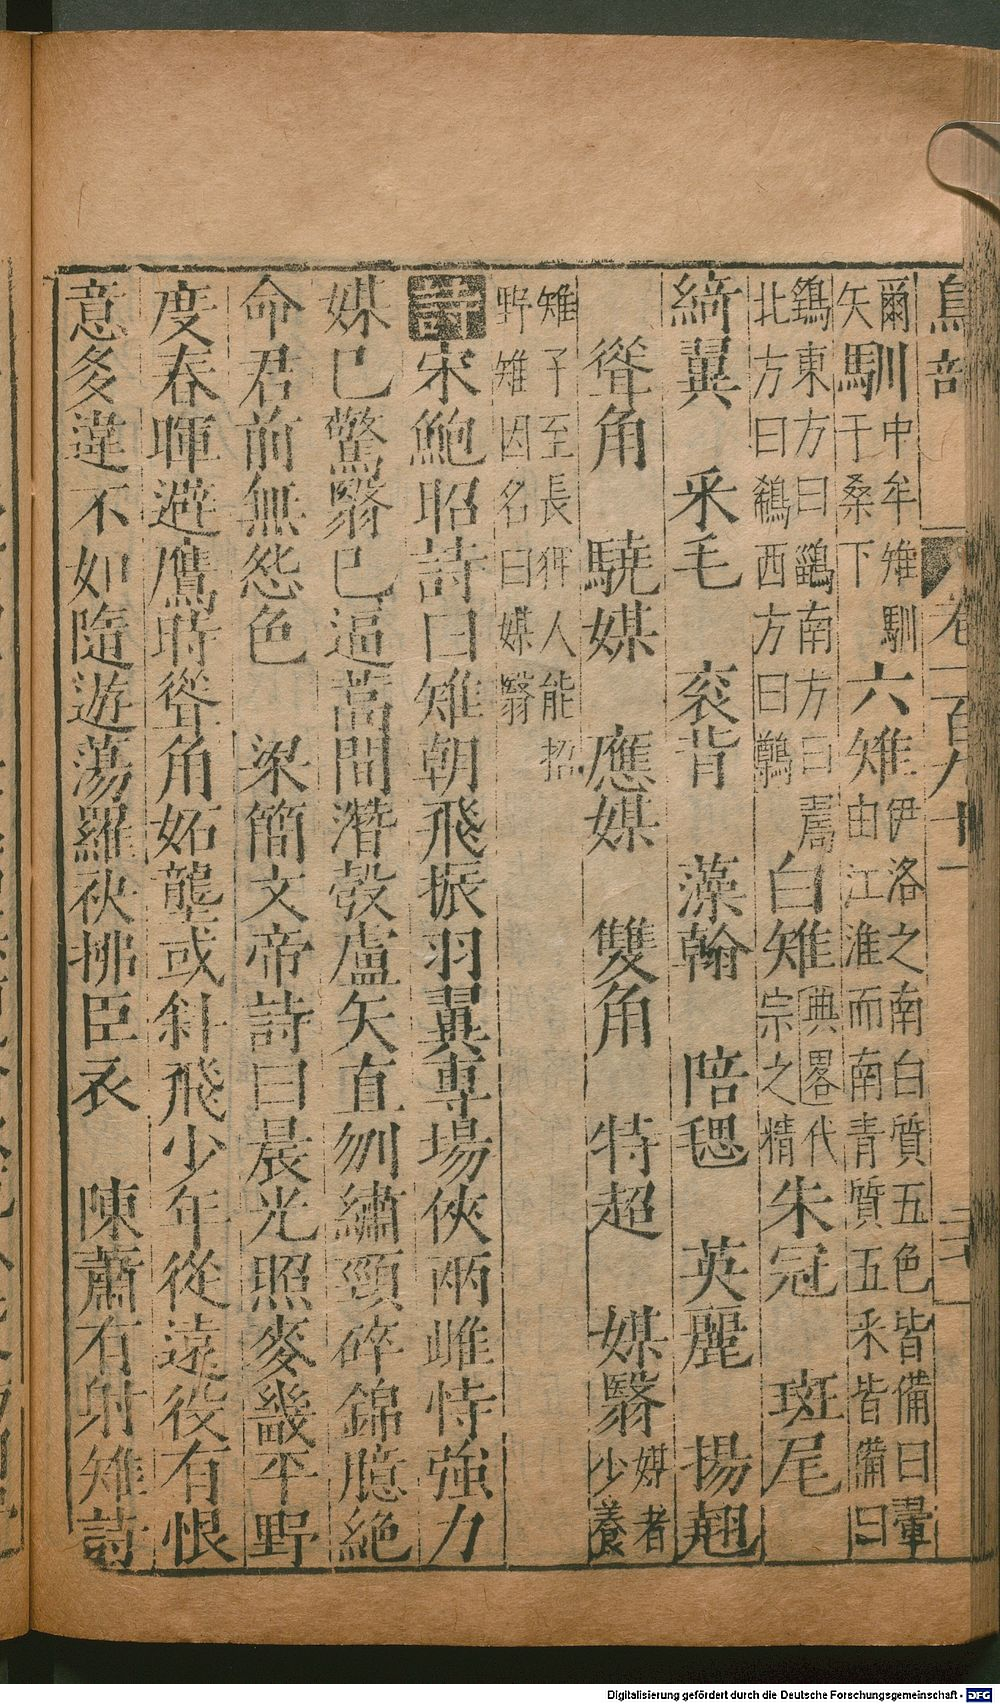 鳥部 卷一百九十一
爾矢馴中牟雉馴于桑下六雉伊洛之南白質五色皆備曰翬由江淮而南青質五采皆備曰
鷂東方曰鶅南方曰北方曰鵗西方曰鷷白雉典畧代宗之精朱冠 斑尾
綺翼 采毛 衮背 藻翰 陪毸 英麗 揚翹
聳角 驍媒 應媒 雙角 特超 媒翳媒者少養
雉子至長狎人能招野雉因名曰媒翳
詩宋鮑昭詩曰雉朝飛振羽翼專場俠兩雌恃強力
媒已驚翳已逼蒿間潛彀盧矢直刎繡頸碎錦臆絕
命君前無怨色 梁簡文帝詩曰晨光照麥畿平野
度春暉避鷹時聳角妬壟或斜飛少年從遠役有恨
意多違不如隨遊蕩羅袂拂臣衣 陳蕭有射雉詩
Digitalisierung gefördert durch die Deutsche Forschungsgemeinschaft - DFG